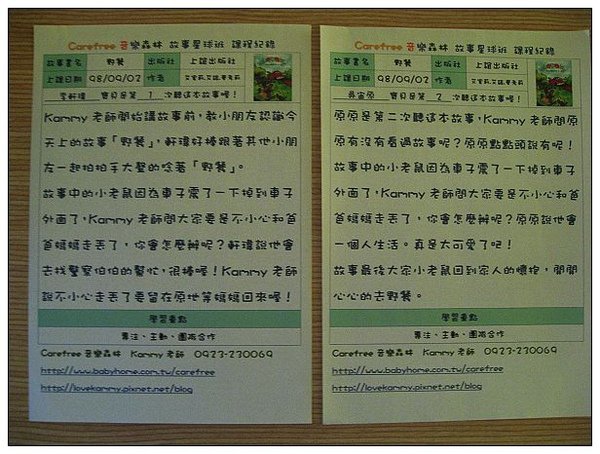 Carefree 音樂森林 故事星球班 課程紀錄
故事書名 野餐 出版社 上誼出版社
上課日期 98/09/02 作者
李軒瑋 寶貝是第 1 次聽這本故事喔！
Kammy 老師開始講故事前，教小朋友認識今
天上的故事「野餐」，軒瑋好棒跟著其他小朋
友一起拍拍手大聲的唸著「野餐」。
故事中的小老鼠因為車子震了一下掉到車子
外面了，Kammy 老師問大家要是不小心和爸
爸媽媽走丟了，你會怎麼辦呢？軒瑋說他會
去找警察伯伯的幫忙，很棒喔！Kammy 老師
說不小心走丟了要留在原地等媽媽回來喔！
學習重點
專注、主動、團隊合作
Carefree 音樂森林 Kammy 老師 0923-230069
http://www.babyhome.com.tw/carefree
http://lovekammy.pixnet.net/blog
Carefree 音樂森林 故事星球班 課程紀錄
故事書名 野餐 出版社 上誼出版社
上課日期 98/09/02 作者
吳宙原 寶貝是第 2 次聽這本故事喔！
原原是第二次聽故事前，Kammy 老師問原
原有沒有看過故事呢？原原點點頭說有呢！
故事中的小老鼠因為車子震了一下掉到車子
外面了，Kammy 老師問大家要是不小心和爸
爸媽媽走丟了，你會怎麼辦呢？原原說他會
一個人生活。真是太可愛了吧！
故事最後大家小老鼠回到家人的懷抱，開開
心心的去野餐。
學習重點
專注、主動、團隊合作
Carefree 音樂森林 Kammy 老師 0923-230069
http://www.babyhome.com.tw/carefree
http://lovekammy.pixnet.net/blog